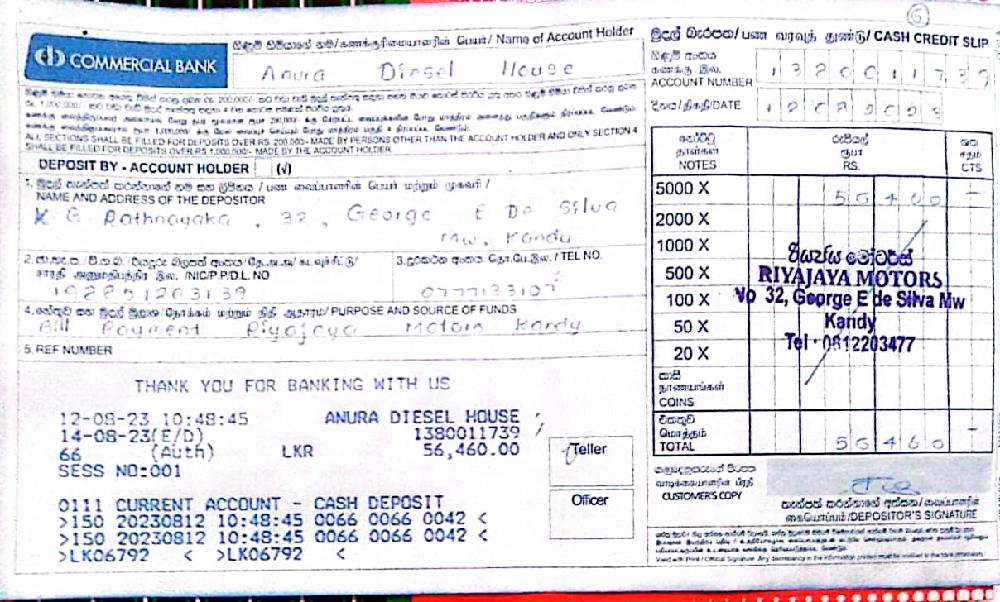 COMMERCIAL BANK
ගිණුම් හිමියාගේ නම/கணக்குரிமையாளரின் பெயர்/ Name of Account Holder
Anura Diesel House
ALL SECTIONS SHALL BE FILLED FOR DEPOSITS OVER RS. 200,000/- MADE BY PERSONS OTHER THAN THE ACCOUNT HOLDER AND ONLY SECTION 4
SHALL BE FILLED FOR DEPOSITS OVER RS 1,000,000/- MADE BY THE ACCOUNT HOLDER
DEPOSIT BY - ACCOUNT HOLDER (√)
NAME AND ADDRESS OF THE DEPOSITOR
K G Rathnayaka , 32, George E De Silva
Mw, Kandy
/NIC/P.P/D.L. NO
3. දුරකථන අංකය தொ.பே.இல. / TEL NO.
198851203139
0777133107
PURPOSE AND SOURCE OF FUNDS
Bill Payment Riyajaya Motors Kandy
5. REF NUMBER
THANK YOU FOR BANKING WITH US
12-08-23 10:48:45 ANURA DIESEL HOUSE
14-08-23(E/D) 1380011739
66 (Auth) LKR 56,460.00
SESS NO:001
0111 CURRENT ACCOUNT - CASH DEPOSIT
>150 20230812 10:48:45 0066 0066 0042 <
>150 20230812 10:48:45 0066 0066 0042 <
>LK06792 < >LK06792 <
Teller
Officer
මුදල් බැරපත/ பண வரவுத் துண்டு/ CASH CREDIT SLIP
ගිණුම් අංකය
கணக்கு இல.
ACCOUNT NUMBER
1380011739
දිනය/திகதி/DATE
12082023
නෝට්ටු රුපියල් ශත
நாள்கள் ரூபா சதம்
NOTES RS. CTS
5000 X 56460 -
2000 X
1000 X
500 X
100 X
50 X
20 X
රියජය මෝටර්ස්
RIYAJAYA MOTORS
No 32, George E de Silva Mw
Kandy
Tel : 0812203477
කාසි
நாணயங்கள்
COINS
එකතුව
மொத்தம்
TOTAL 56460 -
CUSTOMER'S COPY
கையொப்பம் /DEPOSITOR'S SIGNATURE